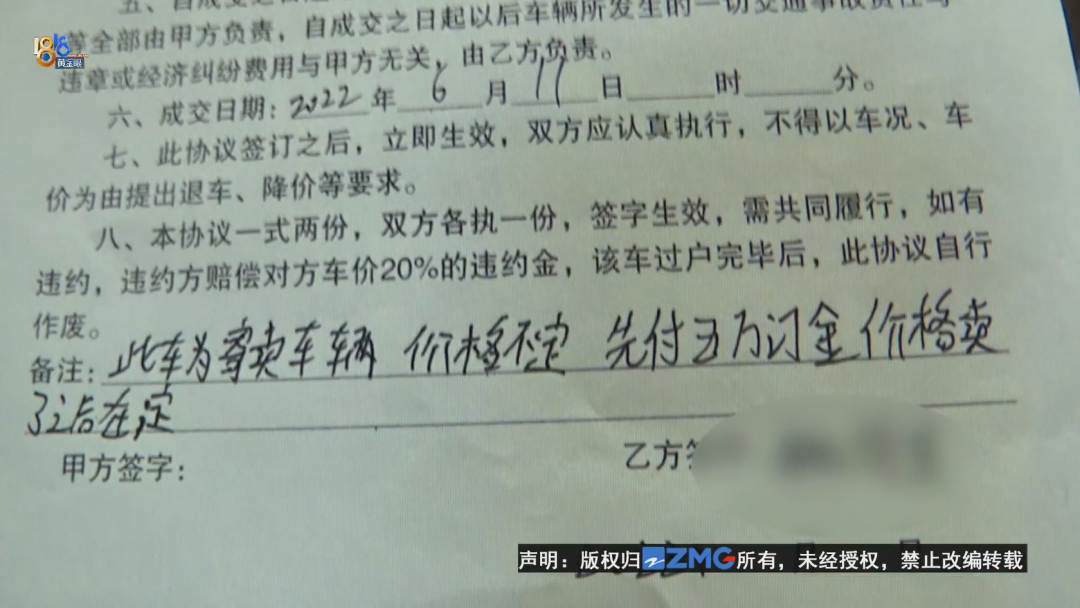 五、自成交之日起
等全部由甲方负责，自成交之日起以后车辆所发生的一切交通事故责任与
违章或经济纠纷费用与甲方无关，由乙方负责。
六、成交日期：2022年6月11日 时 分。
七、此协议签订之后，立即生效，双方应认真执行，不得以车况、车
价为由提出退车、降价等要求。
八、本协议一式两份，双方各执一份，签字生效，需共同履行，如有
违约，违约方赔偿对方车价20%的违约金，该车过户完毕后，此协议自行
作废。
备注：此车为寄卖车辆 价格不定 先付5万订金 价格卖
了之后在定
甲方签字： 乙方
1818
黄金眼
声明：版权归ZMG所有，未经授权，禁止改编转载